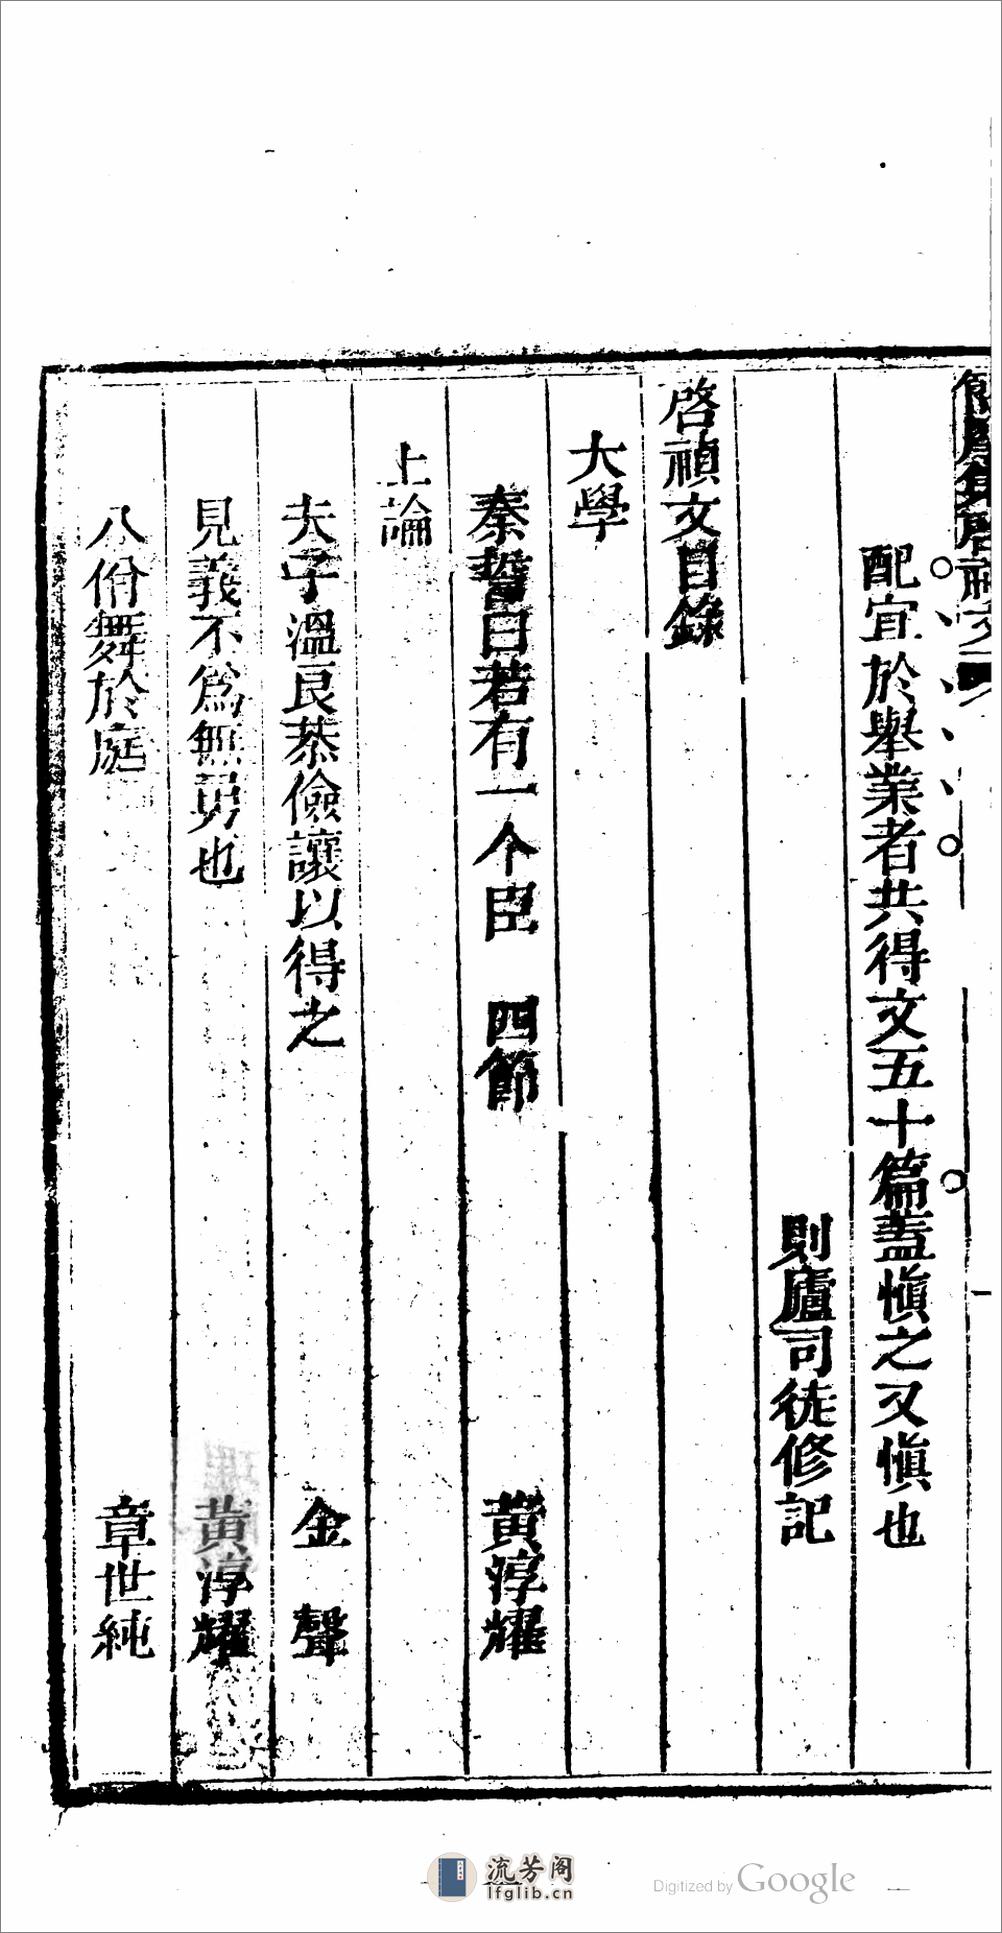 配宜於舉業者共得文五十篇蓋慎之又慎也
則廬司徒修記
啓禎文目錄
大學
秦誓曰若有一个臣 四節 黃淳耀
上論
夫子溫良恭儉讓以得之 金聲
見義不爲無勇也 黃淳耀
八佾舞於庭 章世純
流芳阁
lfglib.cn
Digitized by Google